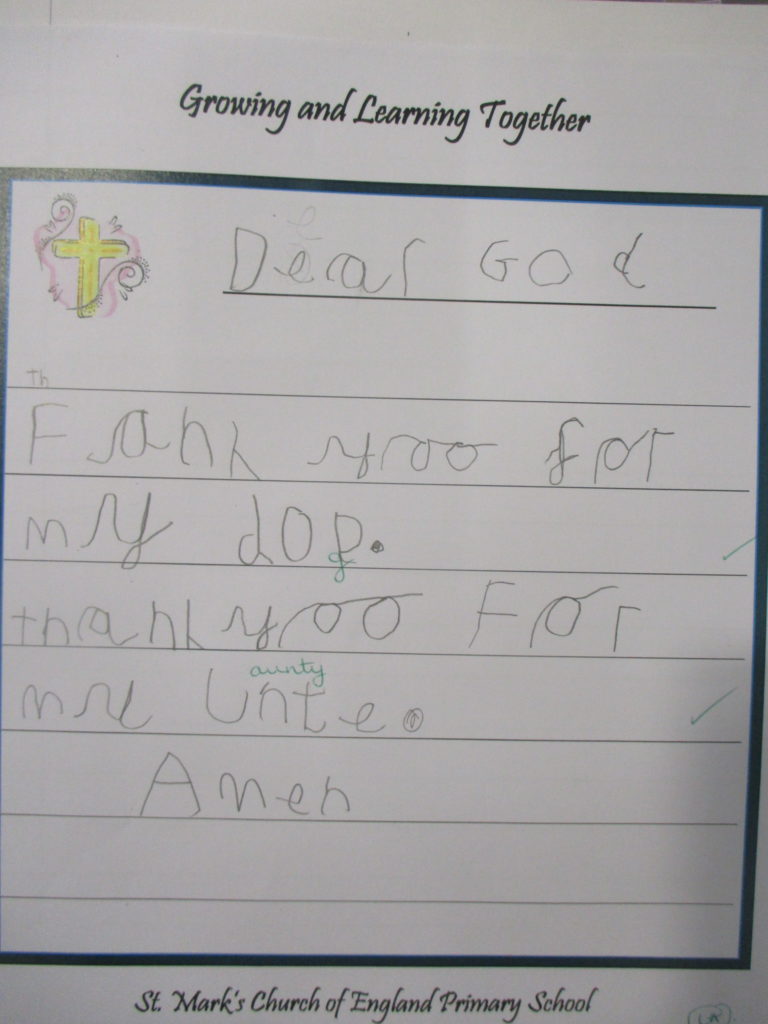 Growing and Learning Together
e
Dear God
th
Fank yoo for
my dop.
g
thank yoo For
aunty
my Unte.
Amen
St. Mark's Church of England Primary School